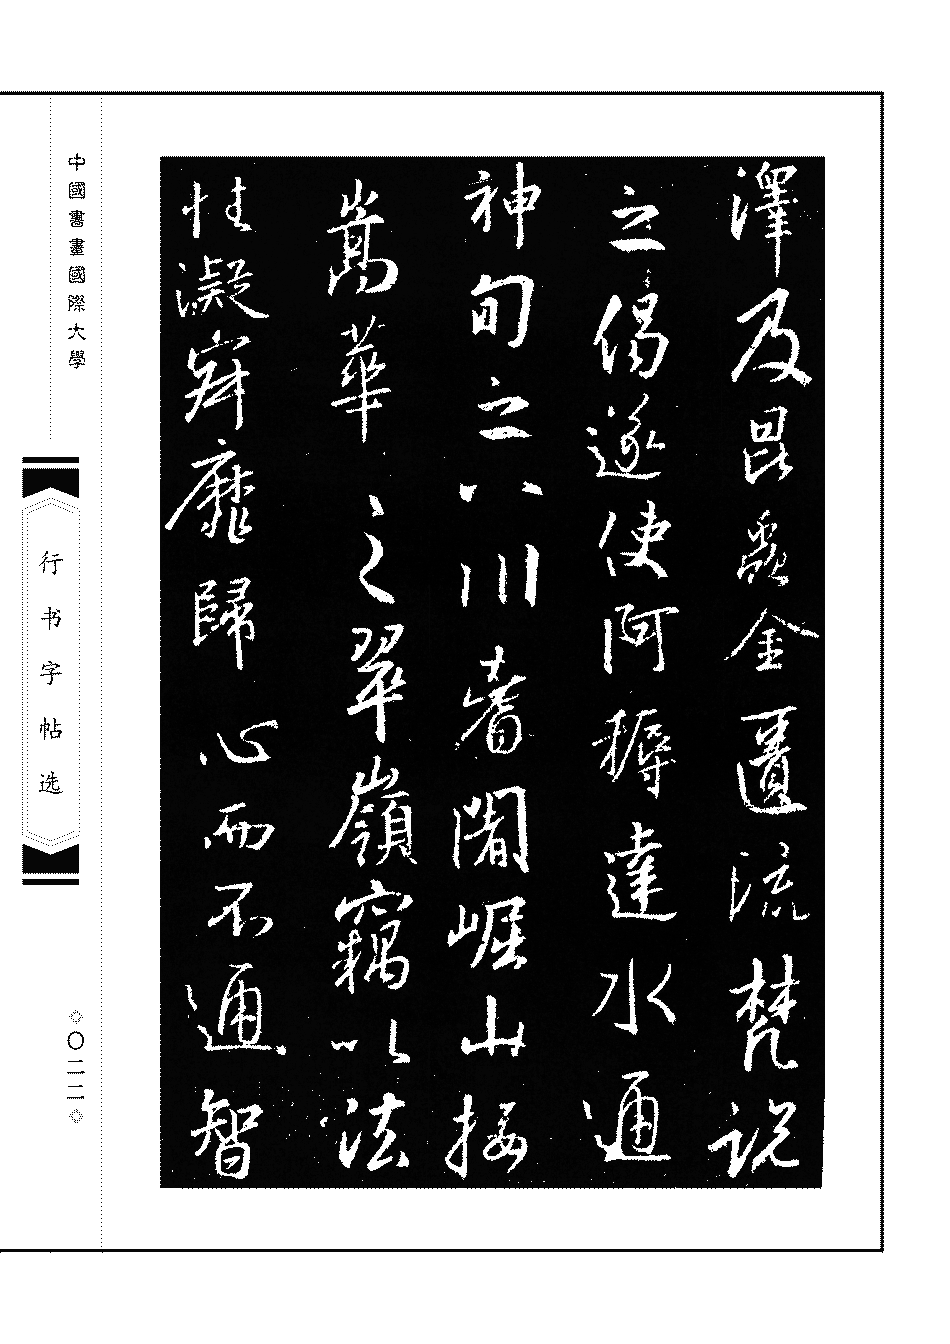 澤及昆蟲金匱流梵説
之偈遂使阿耨達水通
神旬之八川耆闍崛山接
嵩華之翠嶺竊以法
性凝寂靡歸心而不通智
中國書畫國際大學
行书字帖选
◇〇二二◇